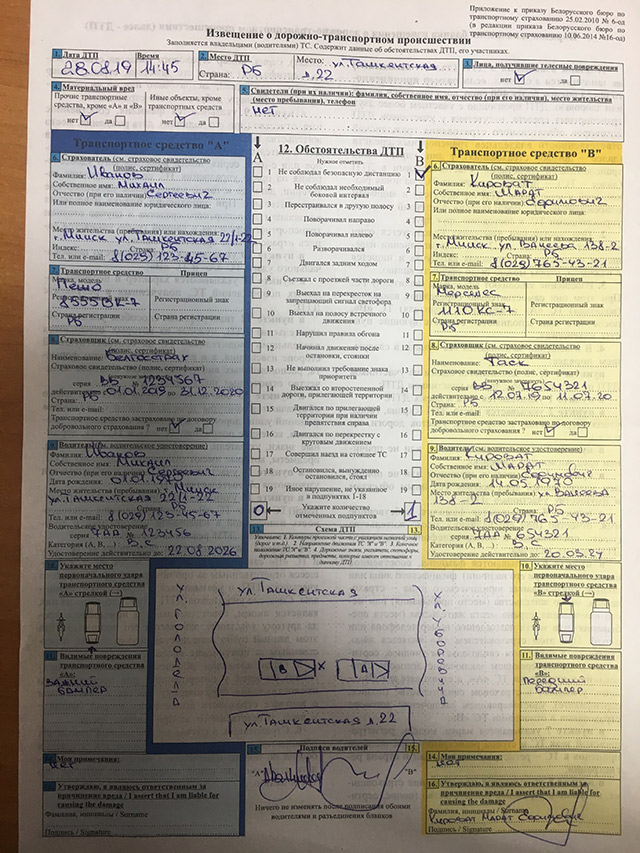 Приложение к приказу Белорусского бюро по
транспортному страхованию 25.02.2010 № 6-од
(в редакции приказа Белорусского бюро по
транспортному страхованию 10.06.2014 №16-од)
Извещение о дорожно-транспортном происшествии
Заполняется владельцами (водителями) ТС. Содержит данные об обстоятельствах ДТП, его участниках.
1. Дата ДТП Время
28.08.19 14:45
2. Место ДТП Место: ул. Ташкентская
Страна: РБ д.22
3. Лица, получившие телесные повреждения
нет да
4. Материальный вред
Прочие транспортные средства, кроме «А» и «В»
Иные объекты, кроме транспортных средств
нет да нет да
5. Свидетели (при их наличии): фамилия, собственное имя, отчество (при его наличии), место жительства
(место пребывания), телефон
нет
Транспортное средство "А"
6. Страхователь (см. страховое свидетельство
(полис, сертификат)
Фамилия: Иванов
Собственное имя: Михаил
Отчество (при его наличии) Сергеевич
Или полное наименование юридического лица:
Место жительства (пребывания) или нахождения
г. Минск ул. Ташкентская 22/1-22
Индекс: Страна: РБ
Тел. или e-mail: 8(029) 123-45-67
7. Транспортное средство Прицеп
Марка, модель
Пежо
8555 ВК-7 Регистрационный знак
Страна регистрации Страна регистрации
РБ
8. Страховщик (см. страховое свидетельство
(полис, сертификат)
Наименование: Белгосстрах
Страховое свидетельство (полис, сертификат)
серия ВБ № 1234567
действительно с 01.01.2019 по 31.12.2020
Страна: РБ
Тел. или e-mail:
Транспортное средство застраховано по договору
добровольного страхования ? нет да
9. Водитель (см. водительское удостоверение)
Фамилия: Иванов
Собственное имя: Михаил
Отчество (при его наличии) Сергеевич
Дата рождения 01.01.1970
Место жительства (пребывания) Минск
ул. Ташкентская 22/1-22
Тел. или e-mail: 8(029) 123-45-67
Водительское удостоверение
серия ТАА № 123456
Категория (А, В, ...) В, С
Удостоверение действительно до 22.08.2026
10. Укажите место
первоначального удара
транспортного средства
«А» стрелкой (→)
11. Видимые повреждения
транспортного средства
«А»:
Задний
бампер
Мои примечания:
нет
Утверждаю, я являюсь ответственным за
причинение вреда / I assert that I am liable for
causing the damage
Фамилия, инициалы / Surname
Подпись / Signature
А 12. Обстоятельства ДТП В
Нужное отметить
1 Не соблюдал безопасную дистанцию 1
2 Не соблюдал необходимый боковой интервал 2
3 Перестраивался в другую полосу 3
4 Поворачивал направо 4
5 Поворачивал налево 5
6 Разворачивался 6
7 Двигался задним ходом 7
8 Съезжал с проезжей части дороги 8
9 Выехал на перекресток на запрещающий сигнал светофора 9
10 Выехал на полосу встречного движения 10
11 Нарушил правила обгона 11
12 Начинал движение после остановки, стоянки 12
13 Не выполнил требование знака приоритета 13
14 Выезжал со второстепенной дороги, прилегающей территории 14
15 Двигался по прилегающей территории при наличии препятствия справа 15
16 Двигался по перекрестку с круговым движением 16
17 Совершил наезд на стоящее ТС 17
18 Остановился, вынужденно остановился, стоял 18
19 Иное нарушение, не указанное в подпунктах 1-18 19
0 Укажите количество отмеченных подпунктов 1
13. Схема ДТП 13.
ул. Ташкентская
ул. Голодеда
ул. Уборевича
В х А
ул. Ташкентская д.22
15. Подписи водителей 15.
"А" "В"
Ничего не изменять после подписания обоими
водителями и разъединения бланков
Транспортное средство "В"
6. Страхователь (см. страховое свидетельство
(полис, сертификат)
Фамилия: Кироват
Собственное имя: Марат
Отчество (при его наличии)
Или полное наименование юридического лица:
Место жительства (пребывания) или нахождения
г. Минск ул. Ванеева 138-2
Индекс: Страна: РБ
Тел. или e-mail: 8(029) 765-43-21
7. Транспортное средство Прицеп
Марка, модель
Мерседес
1110 КС-7 Регистрационный знак
Страна регистрации Страна регистрации
РБ
8. Страховщик (см. страховое свидетельство
(полис, сертификат)
Наименование: Таск
Страховое свидетельство (полис, сертификат)
серия ВВ № 7654321
действительно с 12.07.19 по 11.07.20
Страна: РБ
Тел. или e-mail:
Транспортное средство застраховано по договору
добровольного страхования ? нет да
9. Водитель (см. водительское удостоверение)
Фамилия: Кироват
Собственное имя: Марат
Отчество (при его наличии)
Дата рождения 14.05.1970
Место жительства (пребывания) ул. Ванеева
138-2
Тел. или e-mail: 8(029) 765-43-21
Водительское удостоверение
серия ТАА № 654321
Категория (А, В, ...) В
Удостоверение действительно до 20.05.24
10. Укажите место
первоначального удара
транспортного средства
«В» стрелкой (→)
11. Видимые повреждения
транспортного средства
«В»:
Передний
бампер
14. Мои примечания:
нет
16. Утверждаю, я являюсь ответственным за
причинение вреда / I assert that I am liable for
causing the damage
Фамилия, инициалы / Surname
Кироват Марат
Подпись / Signature